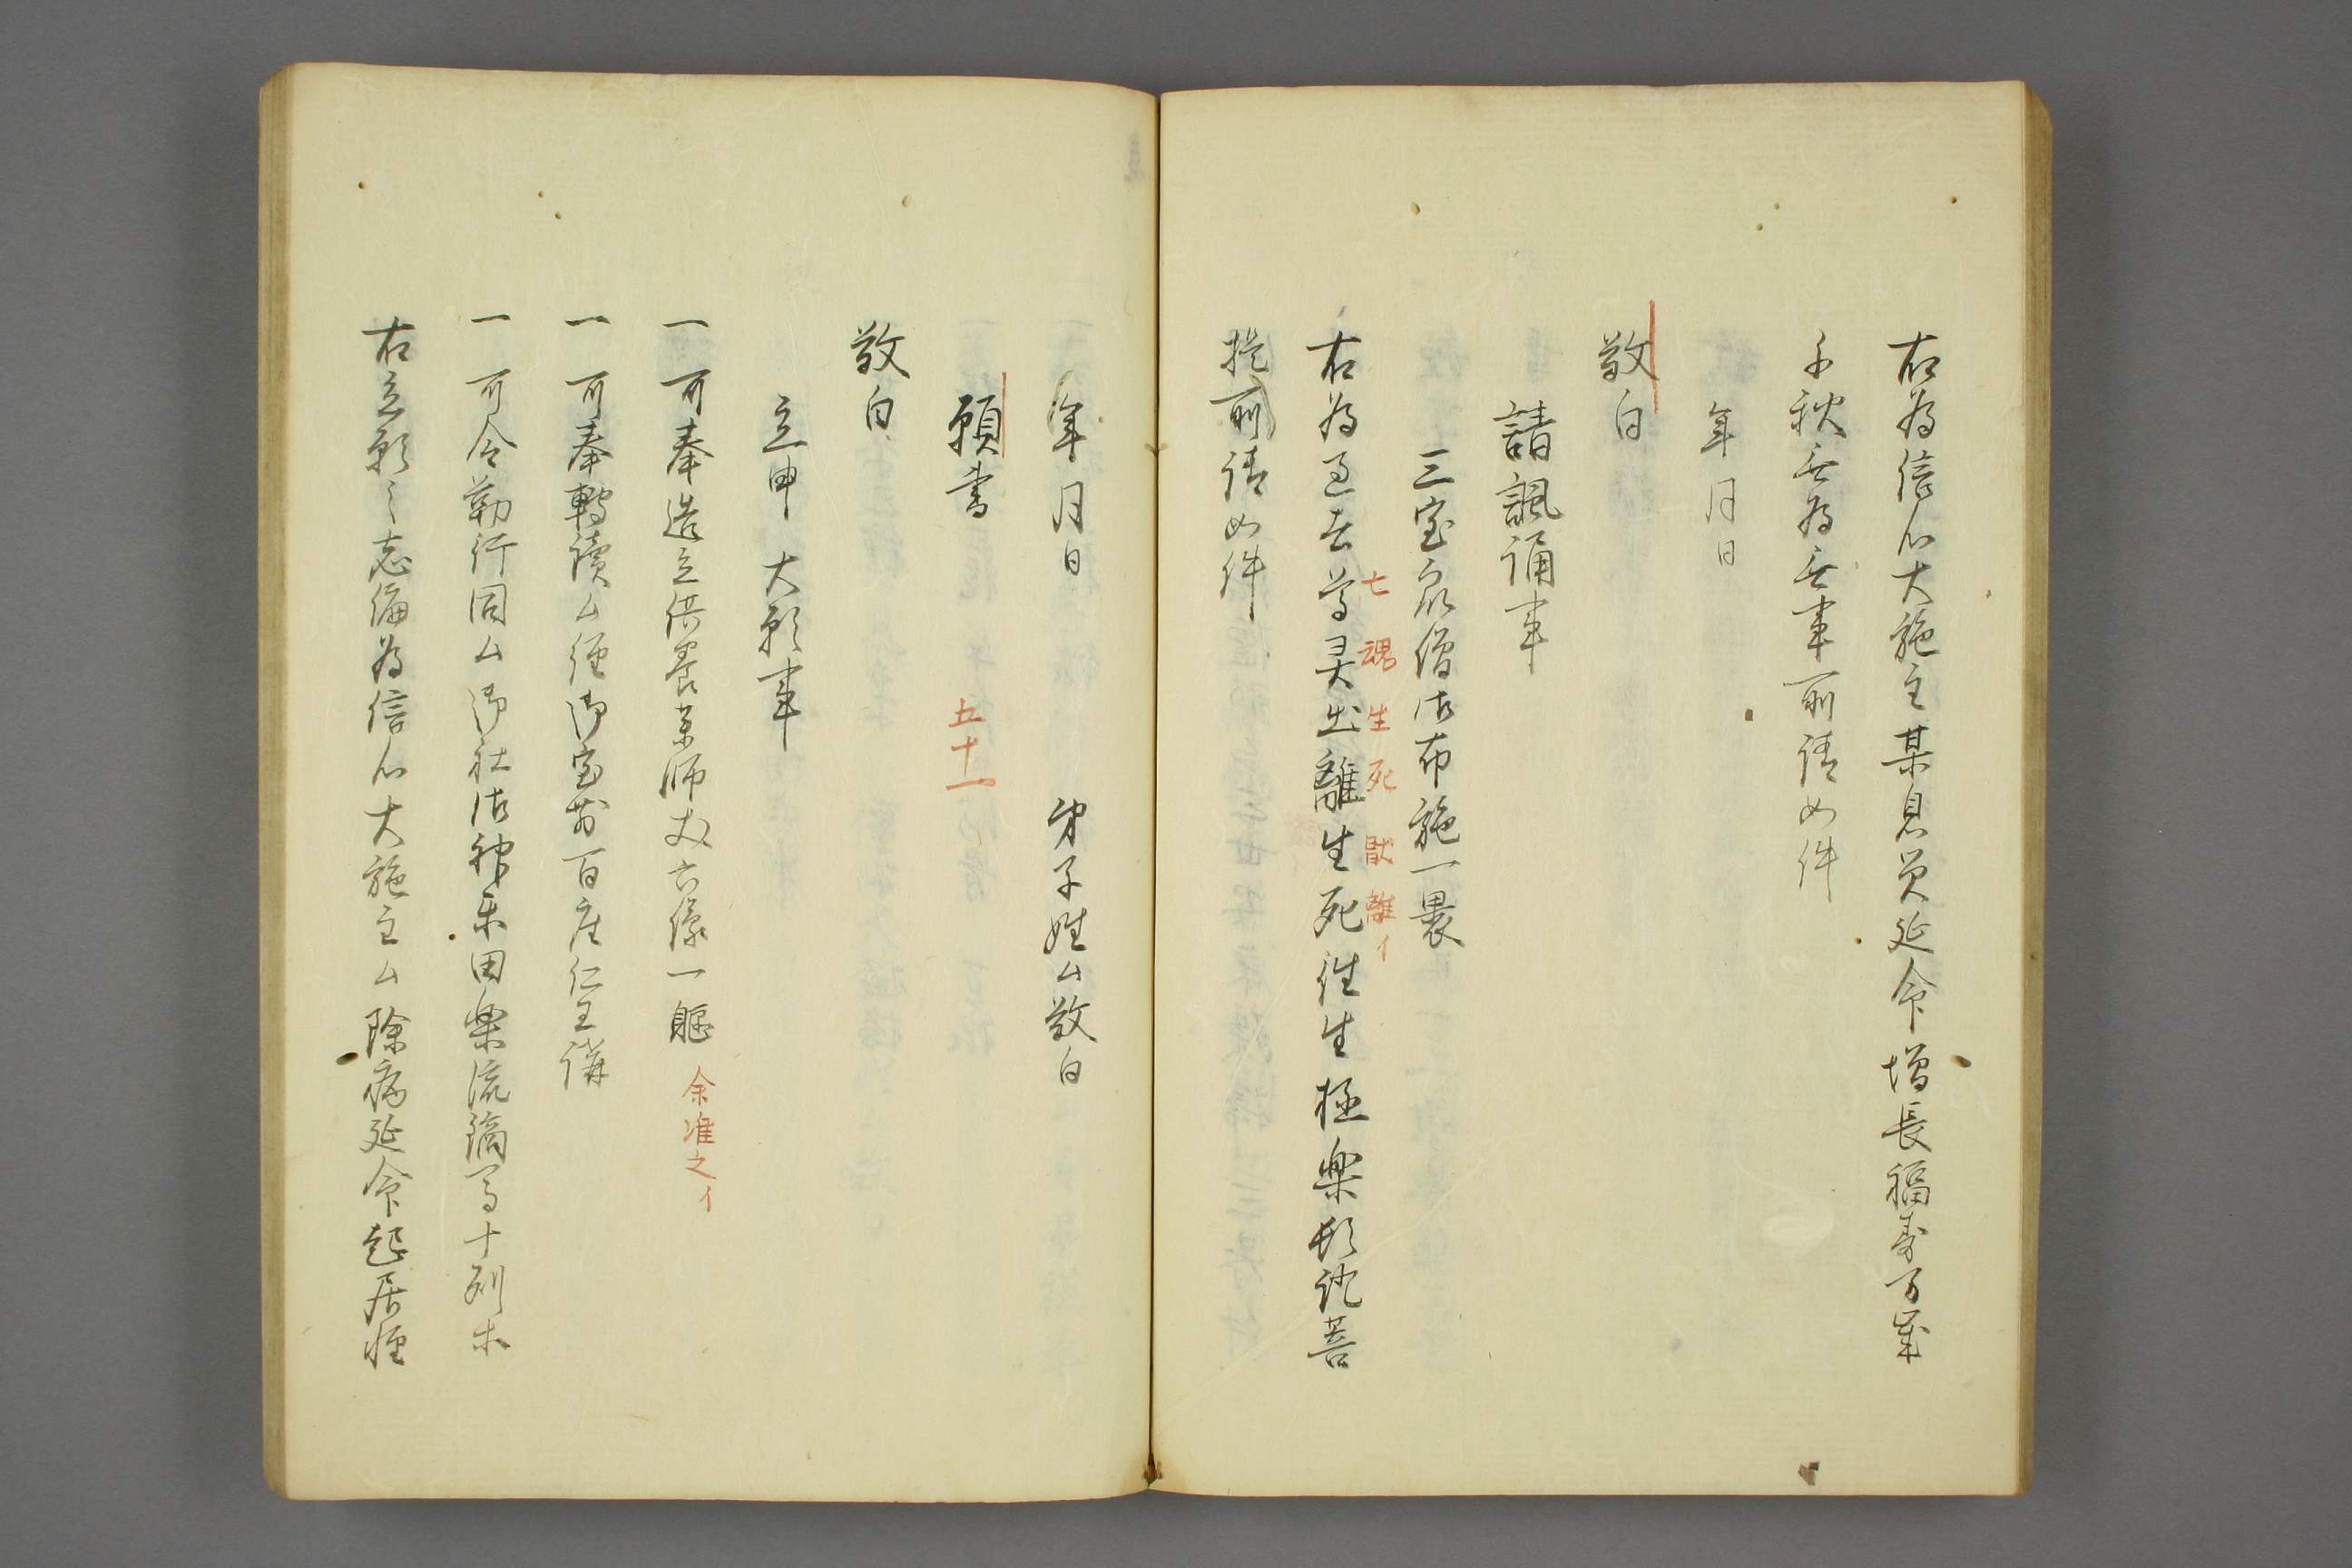 右為信心大施主某息災延命増長福寿万歳
千秋無為無事所請如件
年月日
敬白
請諷誦事
三宝衆僧御布施一裹
右為過去尊灵出離生死往生極楽頓證菩
七魂生死猒離イ
提所請如件
年月日　弟子姓ム敬白
願書　五十一
敬白
立申　大願事
一可奉造立供養薬師丈六像一軀　余准之イ
一可奉轉讀ム經御宝前百座仁王講
一可令勤行同ム御社御神楽田楽流鏑馬十列等
右立願之志偏為信心大施主ム除病延命起居軽